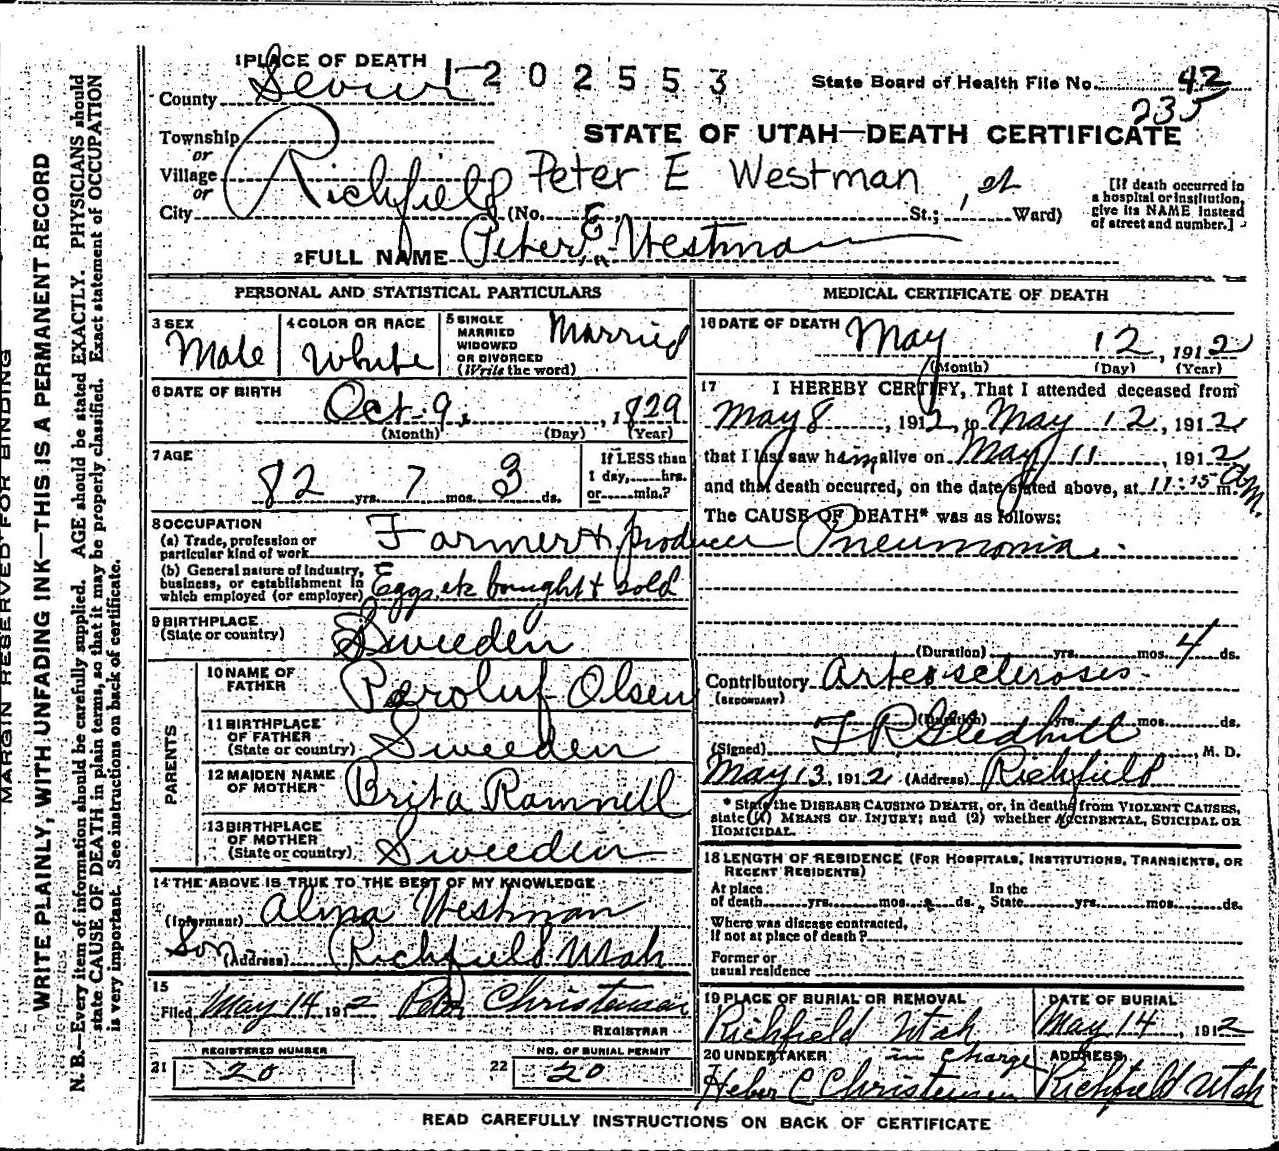 1 PLACE OF DEATH 1-202553
County Sevier
State Board of Health File No. 42
235
Township
or
Village
or
City Richfield
STATE OF UTAH—DEATH CERTIFICATE
Peter E Westman
(No. St.; 1st Ward)
[If death occurred in
a hospital or institution,
give its NAME instead
of street and number.]
2 FULL NAME Peter E. Westman
PERSONAL AND STATISTICAL PARTICULARS
3 SEX Male
4 COLOR OR RACE White
5 SINGLE
MARRIED
WIDOWED
OR DIVORCED
(Write the word) Married
6 DATE OF BIRTH Oct. 9, 1829
(Month) (Day) (Year)
7 AGE 82 yrs. 7 mos. 3 ds.
If LESS than
1 day,......hrs.
or......min.?
8 OCCUPATION
(a) Trade, profession or
particular kind of work Farmer & producer
(b) General nature of industry,
business, or establishment in
which employed (or employer) Eggs, etc bought & sold
9 BIRTHPLACE
(State or country) Sweeden
PARENTS
10 NAME OF
FATHER Peroluf Olsen
11 BIRTHPLACE
OF FATHER
(State or country) Sweeden
12 MAIDEN NAME
OF MOTHER Brita Ramnell
13 BIRTHPLACE
OF MOTHER
(State or country) Sweeden
14 THE ABOVE IS TRUE TO THE BEST OF MY KNOWLEDGE
(Informant) Alma Westman
Son (Address) Richfield Utah
15
Filed May 14 1912 Peter Christensen
REGISTRAR
21 REGISTERED NUMBER 20
22 NO. OF BURIAL PERMIT 20
MEDICAL CERTIFICATE OF DEATH
16 DATE OF DEATH May 12, 1912
(Month) (Day) (Year)
17 I HEREBY CERTIFY, That I attended deceased from
May 8, 1912, to May 12, 1912,
that I last saw him alive on May 11, 1912
and that death occurred, on the date stated above, at 11:15 m. A.M.
The CAUSE OF DEATH* was as follows:
Pneumonia.
(Duration) yrs. mos. 4 ds.
Contributory Arteosclerosis
(SECONDARY)
(Duration) yrs. mos. ds.
(Signed) J R Gledhill, M. D.
May 13, 1912 (Address) Richfield
* State the DISEASE CAUSING DEATH, or, in deaths from VIOLENT CAUSES,
state (1) MEANS OF INJURY; and (2) whether ACCIDENTAL, SUICIDAL OR
HOMICIDAL.
18 LENGTH OF RESIDENCE (FOR HOSPITALS, INSTITUTIONS, TRANSIENTS, OR
RECENT RESIDENTS)
At place
of death......yrs......mos......ds., In the
State......yrs......mos......ds.
Where was disease contracted,
if not at place of death?
Former or
usual residence
19 PLACE OF BURIAL OR REMOVAL
Richfield Utah
DATE OF BURIAL
May 14, 1912
20 UNDERTAKER in charge
Heber C Christensen
ADDRESS
Richfield Utah
READ CAREFULLY INSTRUCTIONS ON BACK OF CERTIFICATE
MARGIN RESERVED FOR BINDING
WRITE PLAINLY, WITH UNFADING INK—THIS IS A PERMANENT RECORD
N. B.—Every item of information should be carefully supplied. AGE should be stated EXACTLY. PHYSICIANS should
state CAUSE OF DEATH in plain terms, so that it may be properly classified. Exact statement of OCCUPATION
is very important. See instructions on back of certificate.